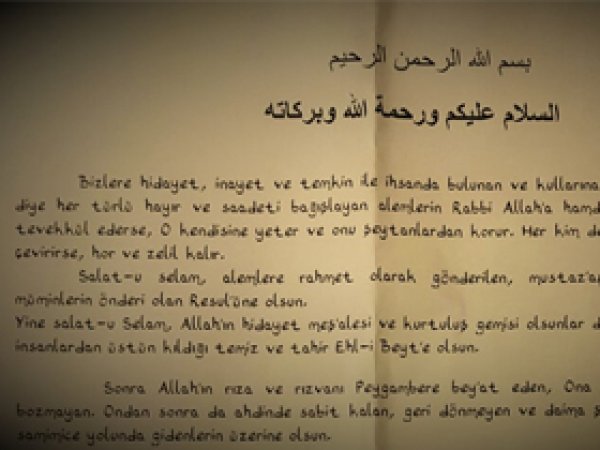 بسم الله الرحمن الرحيم
السلام عليكم ورحمة الله وبركاته
Bizlere hidayet, inayet ve temkin ile ihsanda bulunan ve kullarına
diye her türlü hayır ve saadeti bağışlayan alemlerin Rabbi Allah'a hamd
tevekkül ederse, O kendisine yeter ve onu şeytanlardan korur. Her kim de
çevirirse, hor ve zelil kalır.
Salat-u selam, alemlere rahmet olarak gönderilen, mustaz'a
müminlerin önderi olan Resul'üne olsun.
Yine salat-u Selam, Allah'ın hidayet meş'alesi ve kurtuluş gemisi olsunlar d
insanlardan üstün kıldığı temiz ve tahir Ehl-i Beyt'e olsun.
Sonra Allah'ın rıza ve rızvanı Peygambere bey'at eden, Ona
bozmayan. Ondan sonra da ahdinde sabit kalan, geri dönmeyen ve daima
samimice yolunda gidenlerin üzerine olsun.